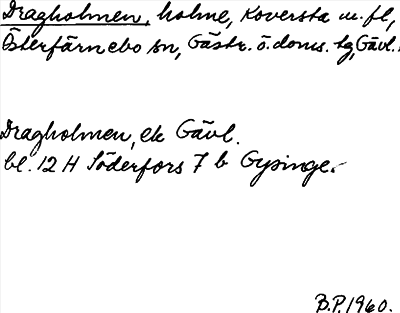 Dragholmen, holme, Koversta m. fl,
Österfärnebo sn, Gästr. ö. doms. tg, Gävl.
Dragholmen, ek Gävl.
bl. 12 H Söderfors 7 b Gysinge.
B.P. 1960.